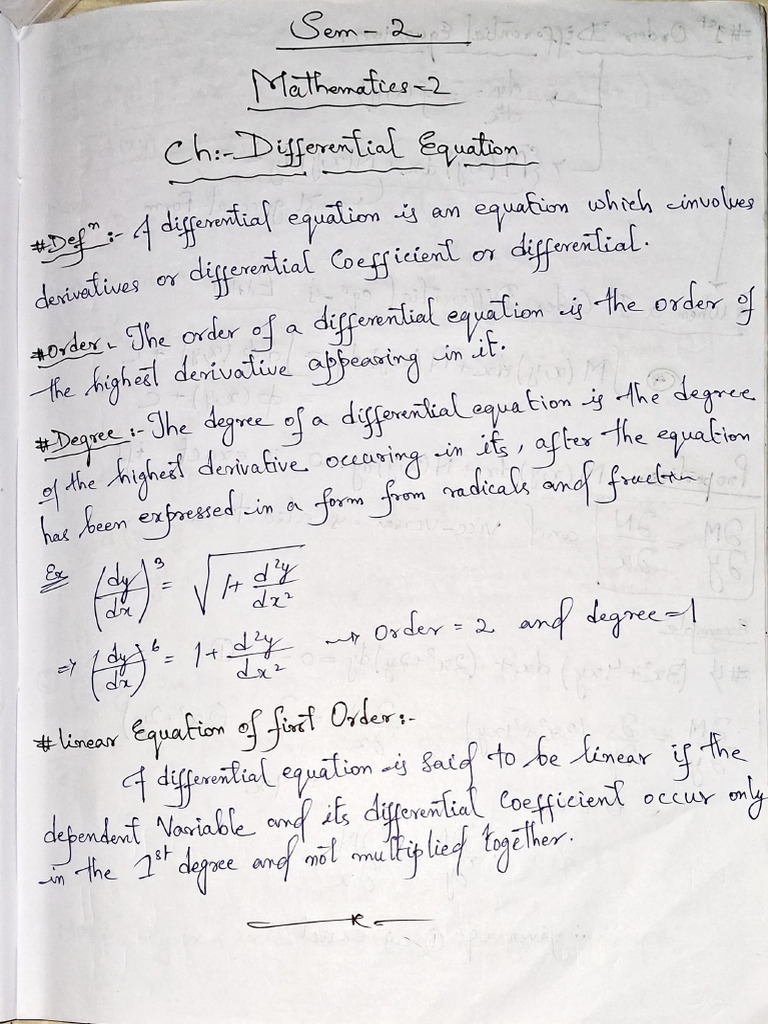 Sem-2
Mathematics-2
Ch:- Differential Equation
#Defⁿ:- A differential equation is an equation which involves
derivatives or differential Coefficient or differential.
#Order:- The order of a differential equation is the order of
the highest derivative appearing in it.
#Degree:- The degree of a differential equation is the degree
of the highest derivative occuring in its, after the equation
has been expressed in a form from radicals and fraction
Ex (dy/dx)³ = √(1+ d²y/dx²)
=> (dy/dx)⁶ = 1+ d²y/dx² → Order = 2 and degree=1
#linear Equation of first Order:-
A differential equation is said to be linear if the
dependent Variable and its differential Coefficient occur only
in the 1st degree and not multiplied together.